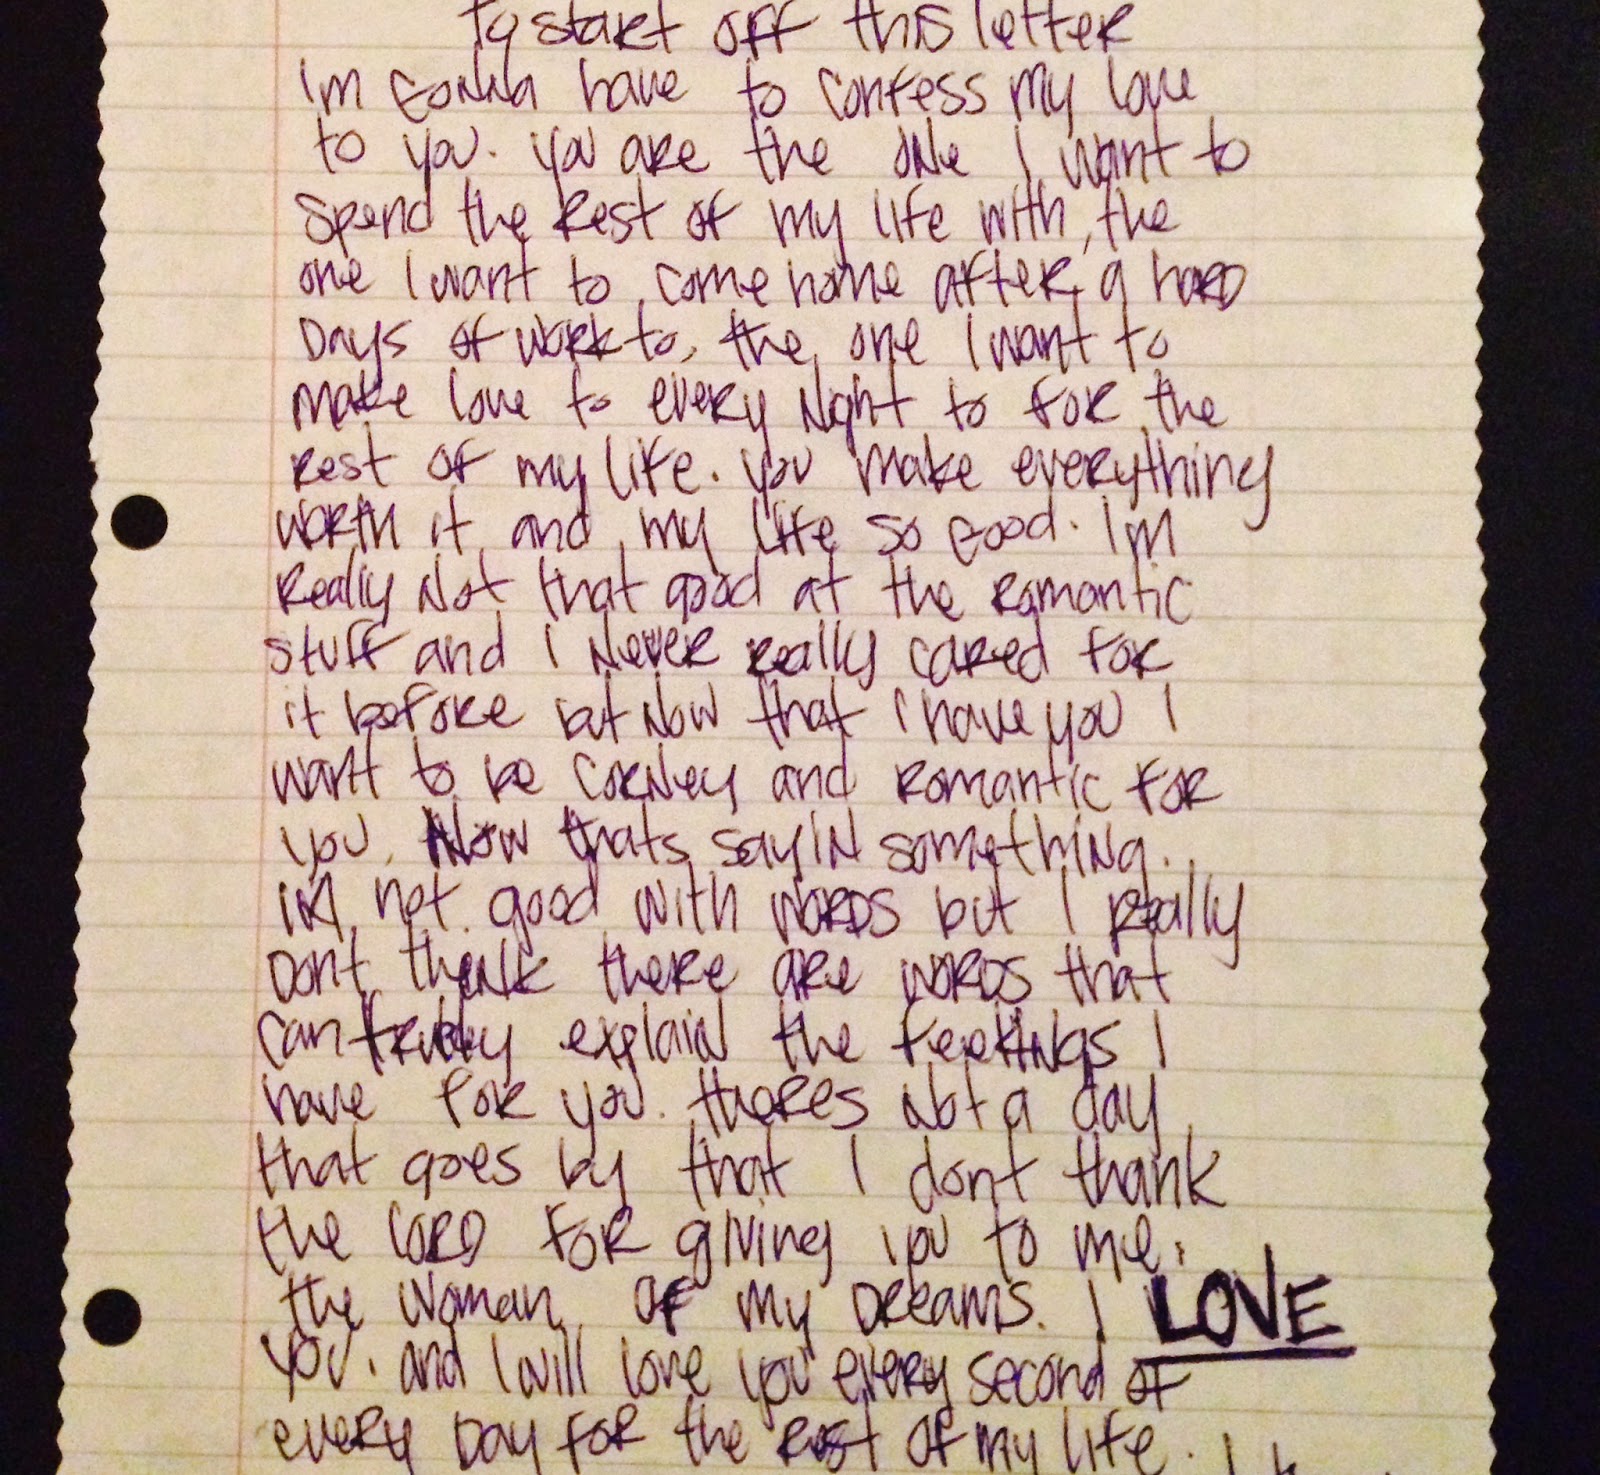 To start off this letter
Im gonna have to confess my love
to you. you are the one I want to
spend the rest of my life with, the
one I want to come home after a hard
days of work to, the one I want to
make love to every night to for the
rest of my life. you make everything
worth it and my life so good. Im
Really Not that good at the romantic
stuff and I never really cared for
it before but now that I have you I
want to be corney and romantic for
you. Now thats sayin something.
im not good with words but I really
Dont think there are words that
can truly explain the feelings I
have for you. theres not a day
that goes by that I dont thank
the LORD for giving you to me.
the woman of my Dreams. I LOVE
you. and I will love you every second of
every Day for the rest of my life.